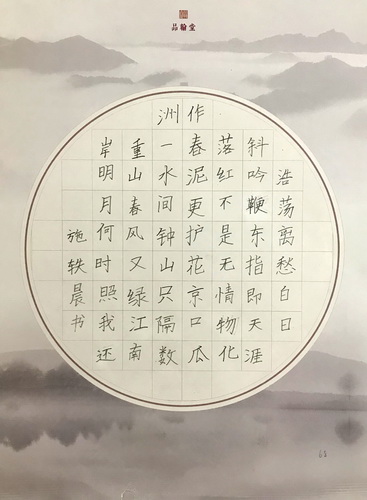 品翰堂
浩荡离愁白日
斜吟鞭东指即天涯
落红不是无情物化
作春泥更护花京口瓜
洲一水间钟山只隔数
重山春风又绿江南
岸明月何时照我还
施轶晨书
68